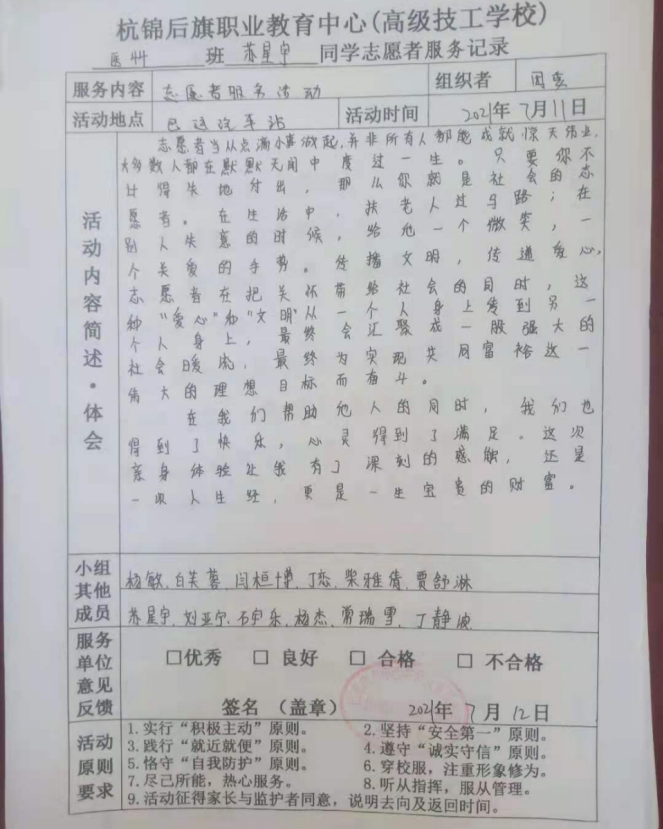 杭锦后旗职业教育中心(高级技工学校)
医州 班 苏星宇 同学志愿者服务记录
服务内容 志愿者服务活动 组织者 团委
活动地点 巴运汽车站 活动时间 2021年7月11日
活动内容简述·体会
志愿者当从点滴小事做起,并非所有人都能成就惊天伟业,
大多数人都在默默无闻中度过一生。只要你不
计得失地付出,那么你就是社会的志
愿者。在生活中,扶老人过马路;在
别人失意的时候,给他一个微笑,一
个关爱的手势。传播文明,传递爱心,
志愿者在把关怀带给社会的同时,这
种“爱心”和“文明”从一个人身上传到另一
个人身上,最终会汇聚成一股强大的
社会暖流,最终为实现共同富裕这一
伟大的理想目标而奋斗。
在我们帮助他人的同时,我们也
得到了快乐,心灵得到了满足。这次
亲身体验让我有了深刻的感触,还是
一次人生经,更是一生宝贵的财富。
小组其他成员
杨敏、白芙蓉、闫桓博、丁恋、柴雅倩、贾舒淋
苏星宇、刘亚宁、石宇乐、杨杰、贾瑞雪、丁静波
服务单位意见反馈
□优秀 □ 良好 □ 合格 □ 不合格
签名 (盖章) 2021年7月12日
活动原则要求
1.实行“积极主动”原则。 2.坚持“安全第一”原则。
3.践行“就近就便”原则。 4.遵守“诚实守信”原则。
5.恪守“自我防护”原则。 6.穿校服,注重形象修为。
7.尽己所能,热心服务。 8.听从指挥,服从管理。
9.活动征得家长与监护者同意,说明去向及返回时间。